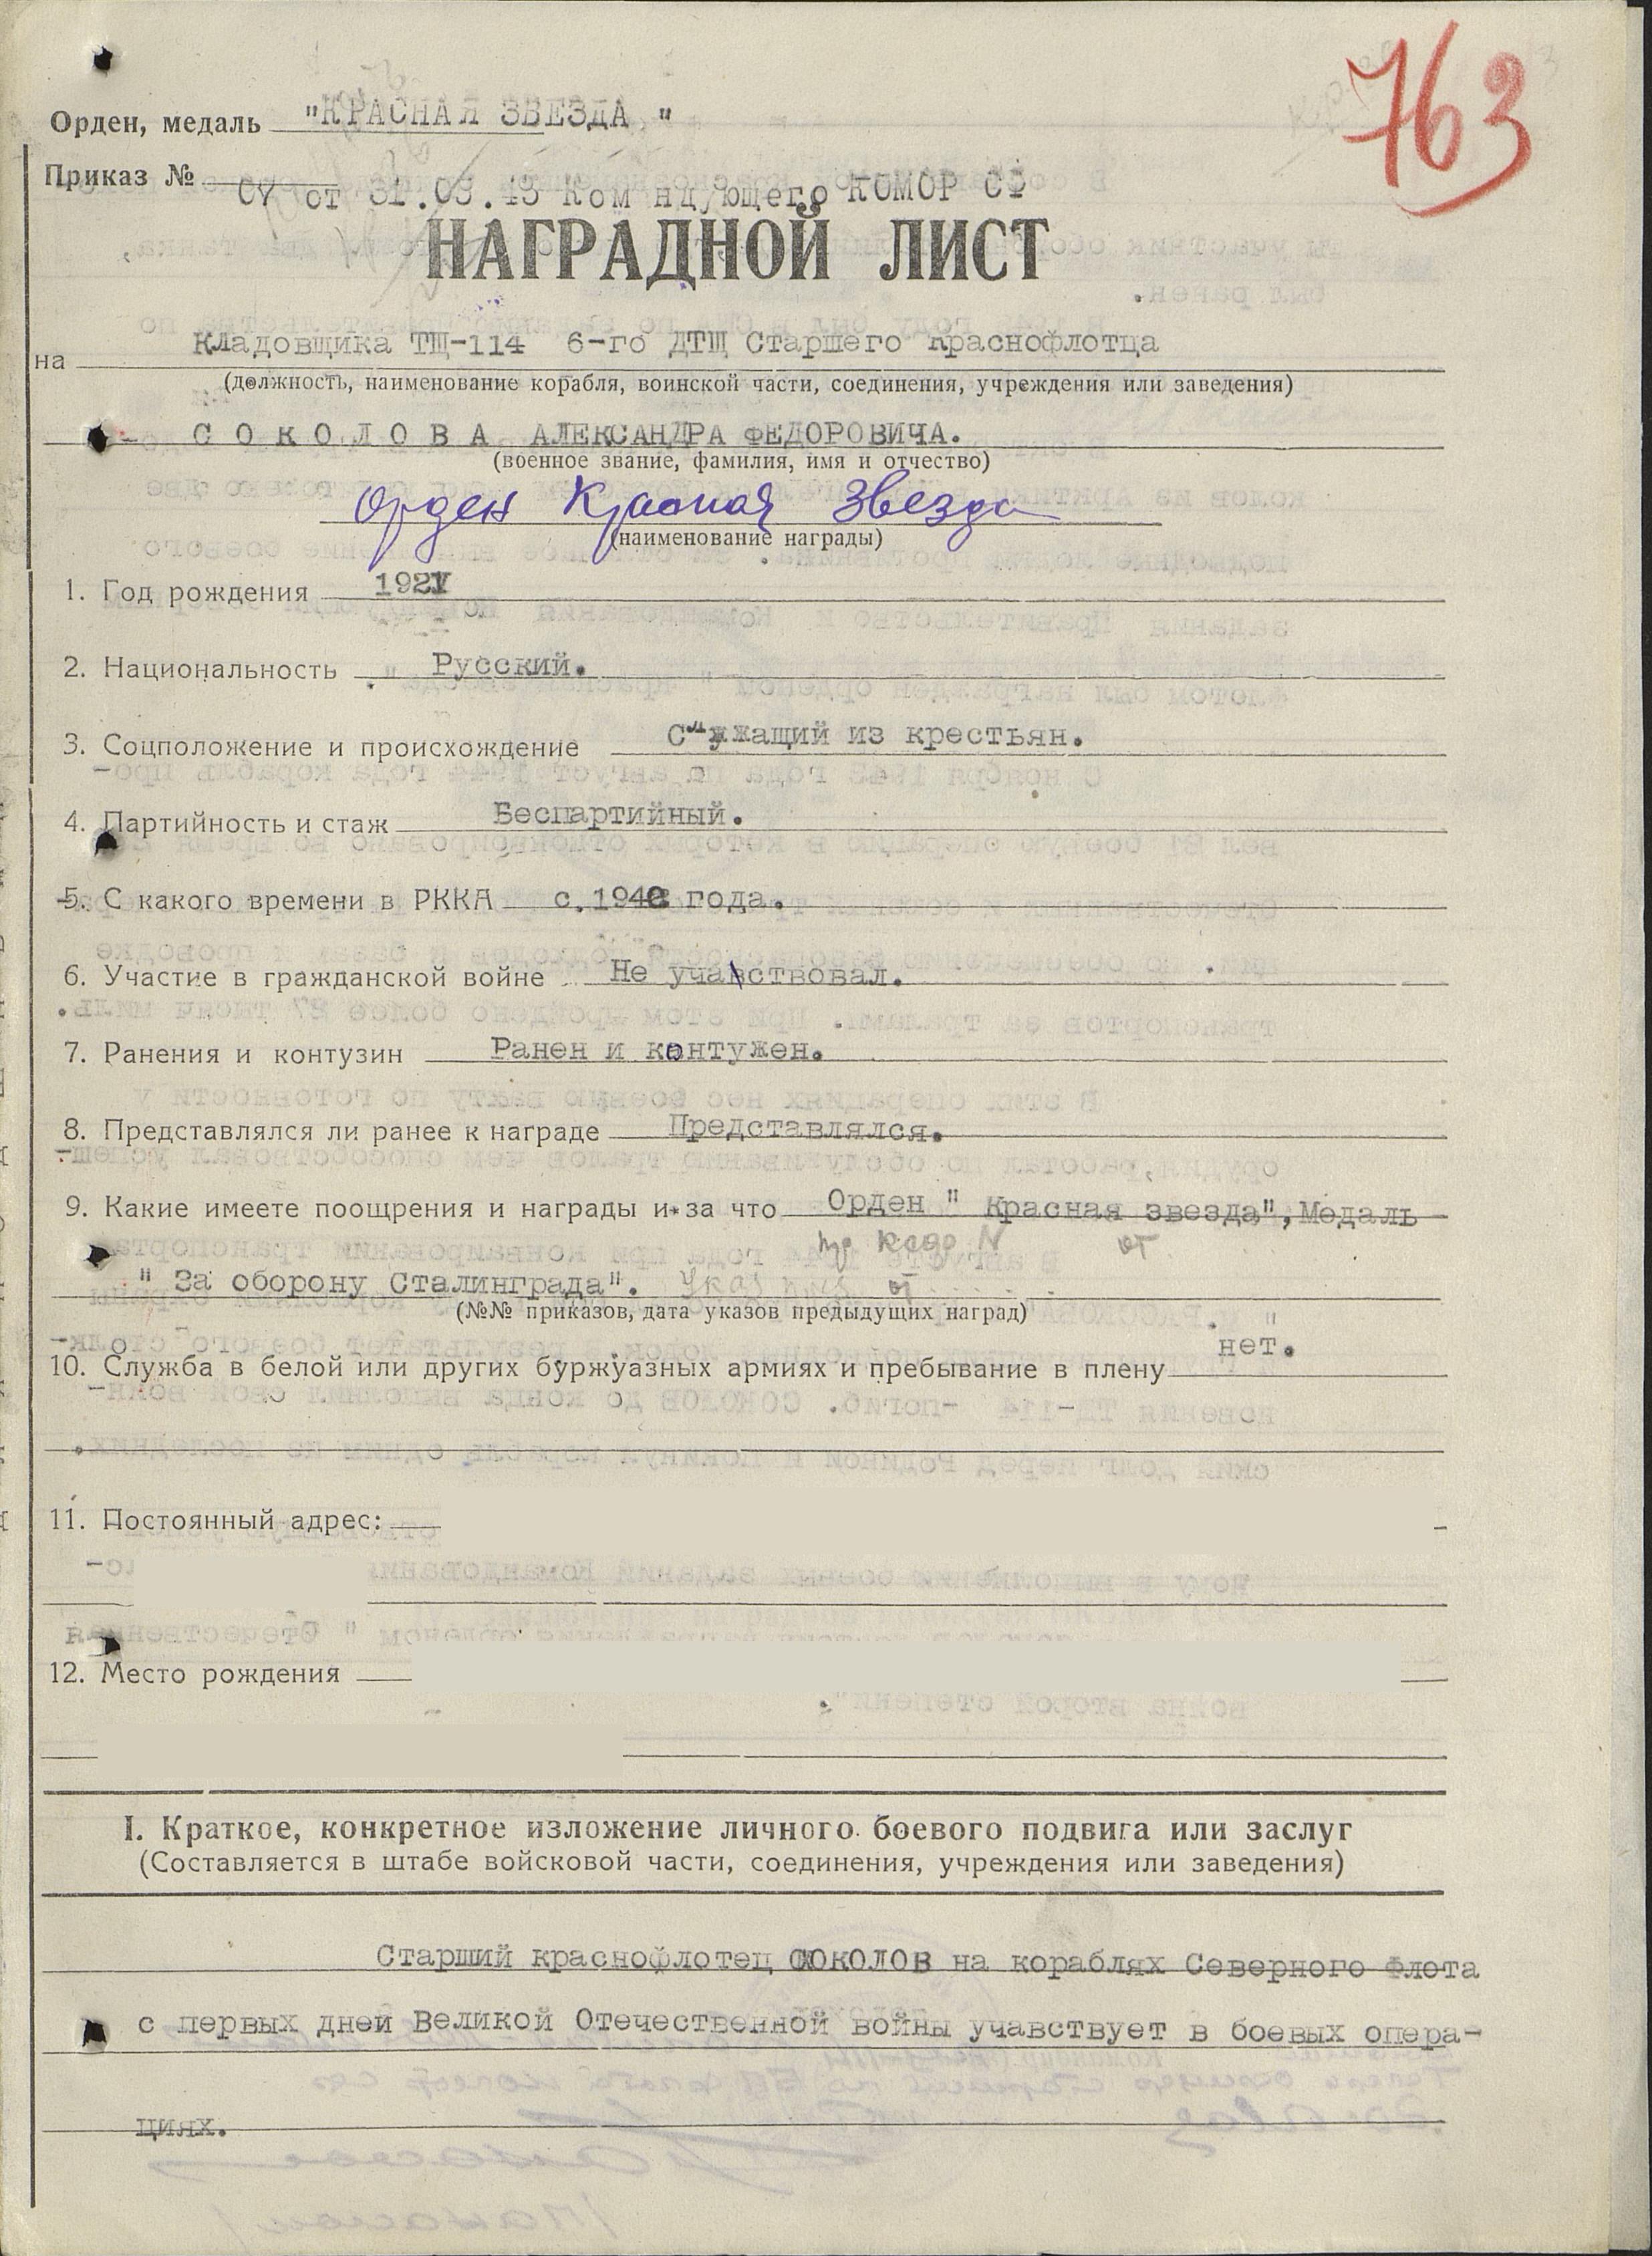 763
Орден, медаль "КРАСНАЯ ЗВЕЗДА"
Приказ №
СУ от 31.03.43 Ком ндующего КОМОР СФ
НАГРАДНОЙ ЛИСТ
на Кладовщика ТЩ-114 6-го ДТЩ Старшего Краснофлотца
(должность, наименование корабля, воинской части, соединения, учреждения или заведения)
- СОКОЛОВА АЛЕКСАНДРА ФЕДОРОВИЧА.
(военное звание, фамилия, имя и отчество)
Орден Красная Звезда
(наименование награды)
1. Год рождения 1921
2. Национальность Русский.
3. Соцположение и происхождение Служащий из крестьян.
4. Партийность и стаж Беспартийный.
5. С какого времени в РККА с. 1940 года.
6. Участие в гражданской войне Не учавствовал.
7. Ранения и контузин Ранен и контужен.
8. Представлялся ли ранее к награде Представлялся.
9. Какие имеете поощрения и награды и за что Орден " Красная звезда", Медаль
" За оборону Сталинграда".
(№№ приказов, дата указов предыдущих наград)
10. Служба в белой или других буржуазных армиях и пребывание в плену нет.
11. Постоянный адрес:
12. Место рождения
I. Краткое, конкретное изложение личного боевого подвига или заслуг
(Составляется в штабе войсковой части, соединения, учреждения или заведения)
Старший краснофлотец СОКОЛОВ на кораблях Северного флота
с первых дней Великой Отечественной войны учавствует в боевых опера-
циях.